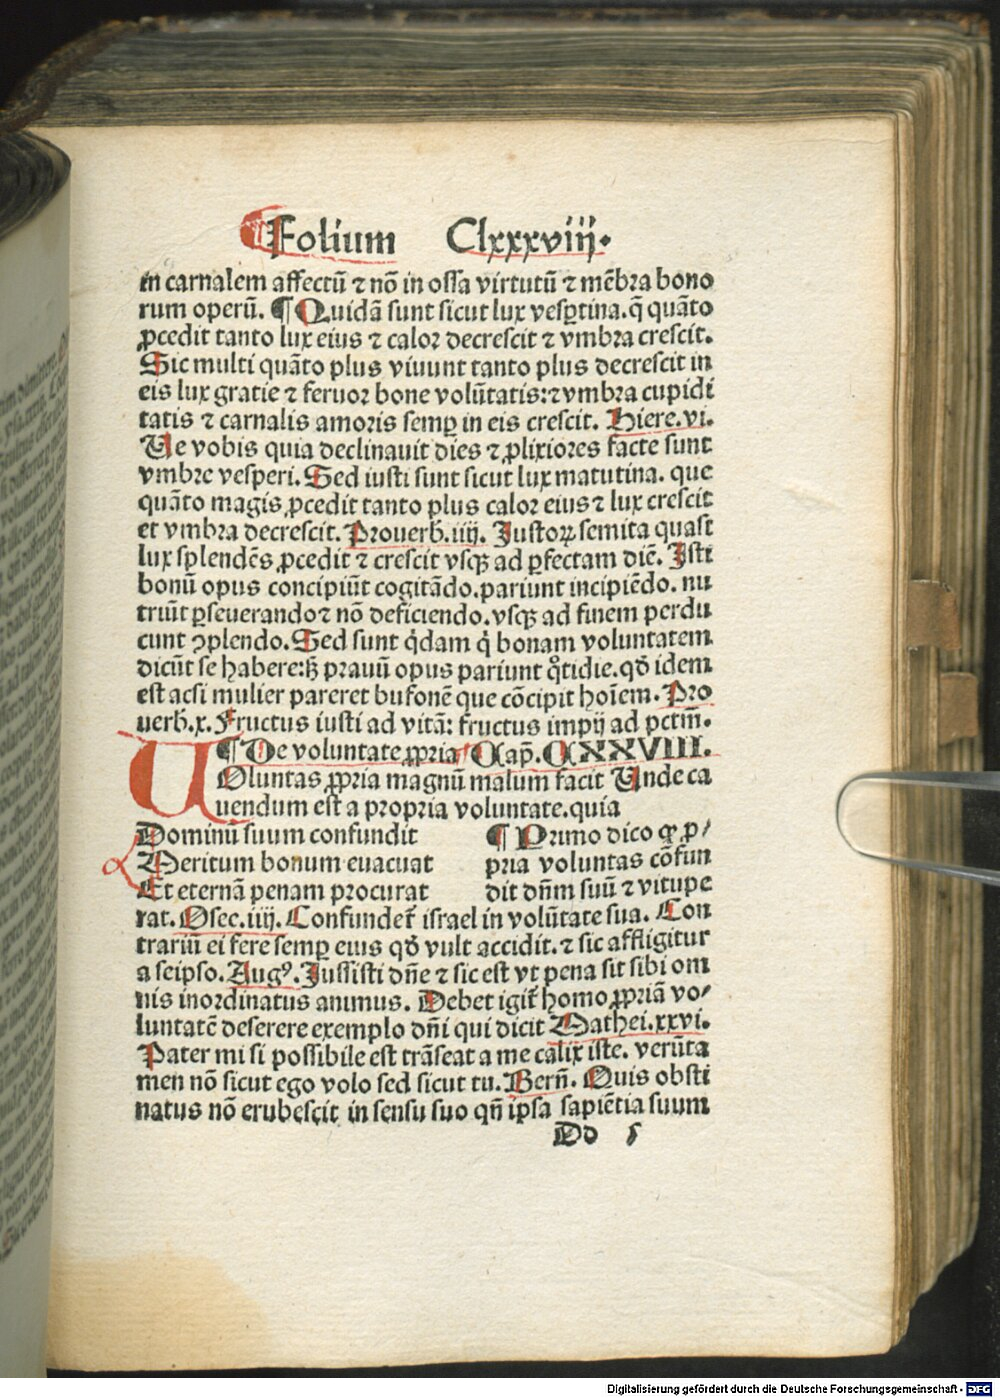 ¶Folium Clxxxviij.
in carnalem affectū ⁊ nō in ossa virtutū ⁊ mēbra bono
rum operū. ¶ Quidā sunt sicut lux vesꝑtina. q̄ quāto
ꝓcedit tanto lux eius ⁊ calor decrescit ⁊ vmbra crescit.
Sic multi quāto plus viuunt tanto plus decrescit in
eis lux gratie ⁊ feruor bone volūtatis: ⁊ vmbra cupidi
tatis ⁊ carnalis amoris semꝑ in eis crescit. Hiere. vi.
Ue vobis quia declinauit dies ⁊ ꝓlixiores facte sunt
vmbre vesperi. Sed iusti sunt sicut lux matutina. que
quāto magis ꝓcedit tanto plus calor eius ⁊ lux crescit
et vmbra decrescit. Prouerb. iiij. Iustoꝝ semita quasi
lux splendēs ꝓcedit ⁊ crescit vsqꝫ ad ꝑfectam diē. Isti
bonū opus concipiūt cogitādo. pariunt incipiēdo. nu
triūt ꝑseuerando ⁊ nō deficiendo. vsqꝫ ad finem perdu
cunt ꝯplendo. Sed sunt q̇dam q̇ bonam voluntatem
dicūt se habere: sꝫ prauū opus pariunt q̊tidie. qđ idem
est acsi mulier pareret bufonē que cōcipit hoīem. Pro
uerb. x. Fructus iusti ad vitā: fructus impij ad pctm̄.
¶ De voluntate ꝓpria Cap̄. CXXVIII.
Uoluntas ꝓpria magnū malum facit Unde ca
uendum est a propria voluntate. quia
Dominū suum confundit
Meritum bonum euacuat
Et eternā penam procurat
¶ Primo dico qꝙ ꝓ/
pria voluntas cōfun
dit dn̄m suū ⁊ vitupe
rat. Osee. iiij. Confundet̄ israel in volūtate sua. Con
trariū ei fere semꝑ eius qđ vult accidit. ⁊ sic affligitur
a seipso. Augꝰ. Iussisti dn̄e ⁊ sic est vt pena sit sibi om
nis inordinatus animus. Debet igit̄ homo ꝓpriā vo/
luntatē deserere exemplo dn̄i qui dicit Mathei. xxvi.
Pater mi si possibile est trāseat a me calix iste. verūta
men nō sicut ego volo sed sicut tu. Bern̄. Quis obsti
natus nō erubescit in sensu suo qn̄ ipsa sapiētia suum
Dd
Digitalisierung gefördert durch die Deutsche Forschungsgemeinschaft - DFG